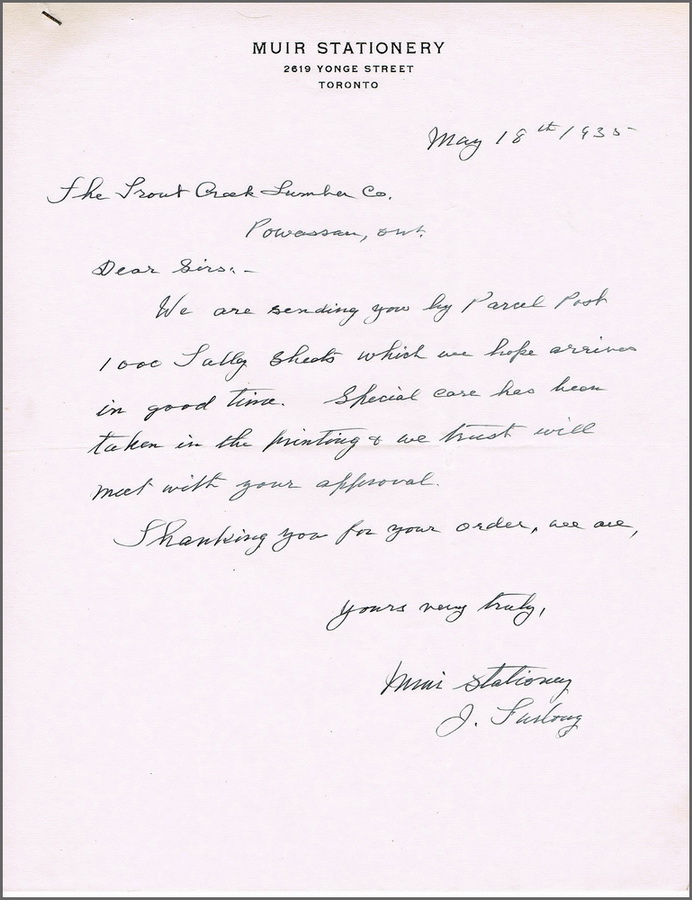 MUIR STATIONERY
2619 YONGE STREET
TORONTO
May 18th/1935
The Trout Creek Lumber Co.
Powassan, Ont.
Dear Sirs:-
We are sending you by Parcel Post
1000 Tally Sheets which we hope arrives
in good time. Special care has been
taken in the printing & we trust will
meet with your approval.
Thanking you for your order, we are,
Yours very truly,
Muir Stationery
J. Furlong